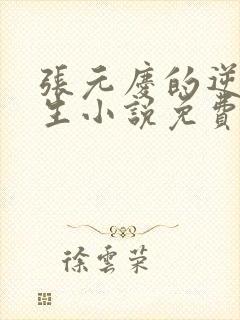 張元慶的逆
生小說免費
徐雲榮